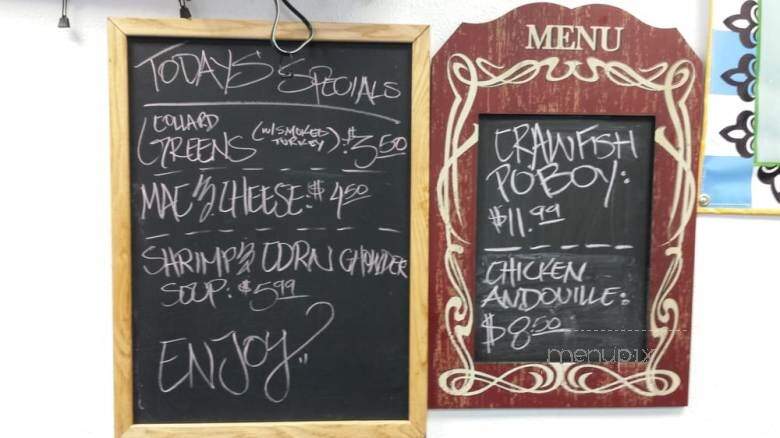 TODAYS SPECIALS
COLLARD
GREENS (W/SMOKED TURKEY): $3.50
MAC 'N CHEESE: $4.50
SHRIMP 'N CORN CHOWDER
SOUP: $5.99
ENJOY!
MENU
CRAWFISH
PO'BOY:
$11.99
CHICKEN
ANDOUILLE:
$8.50
menupix